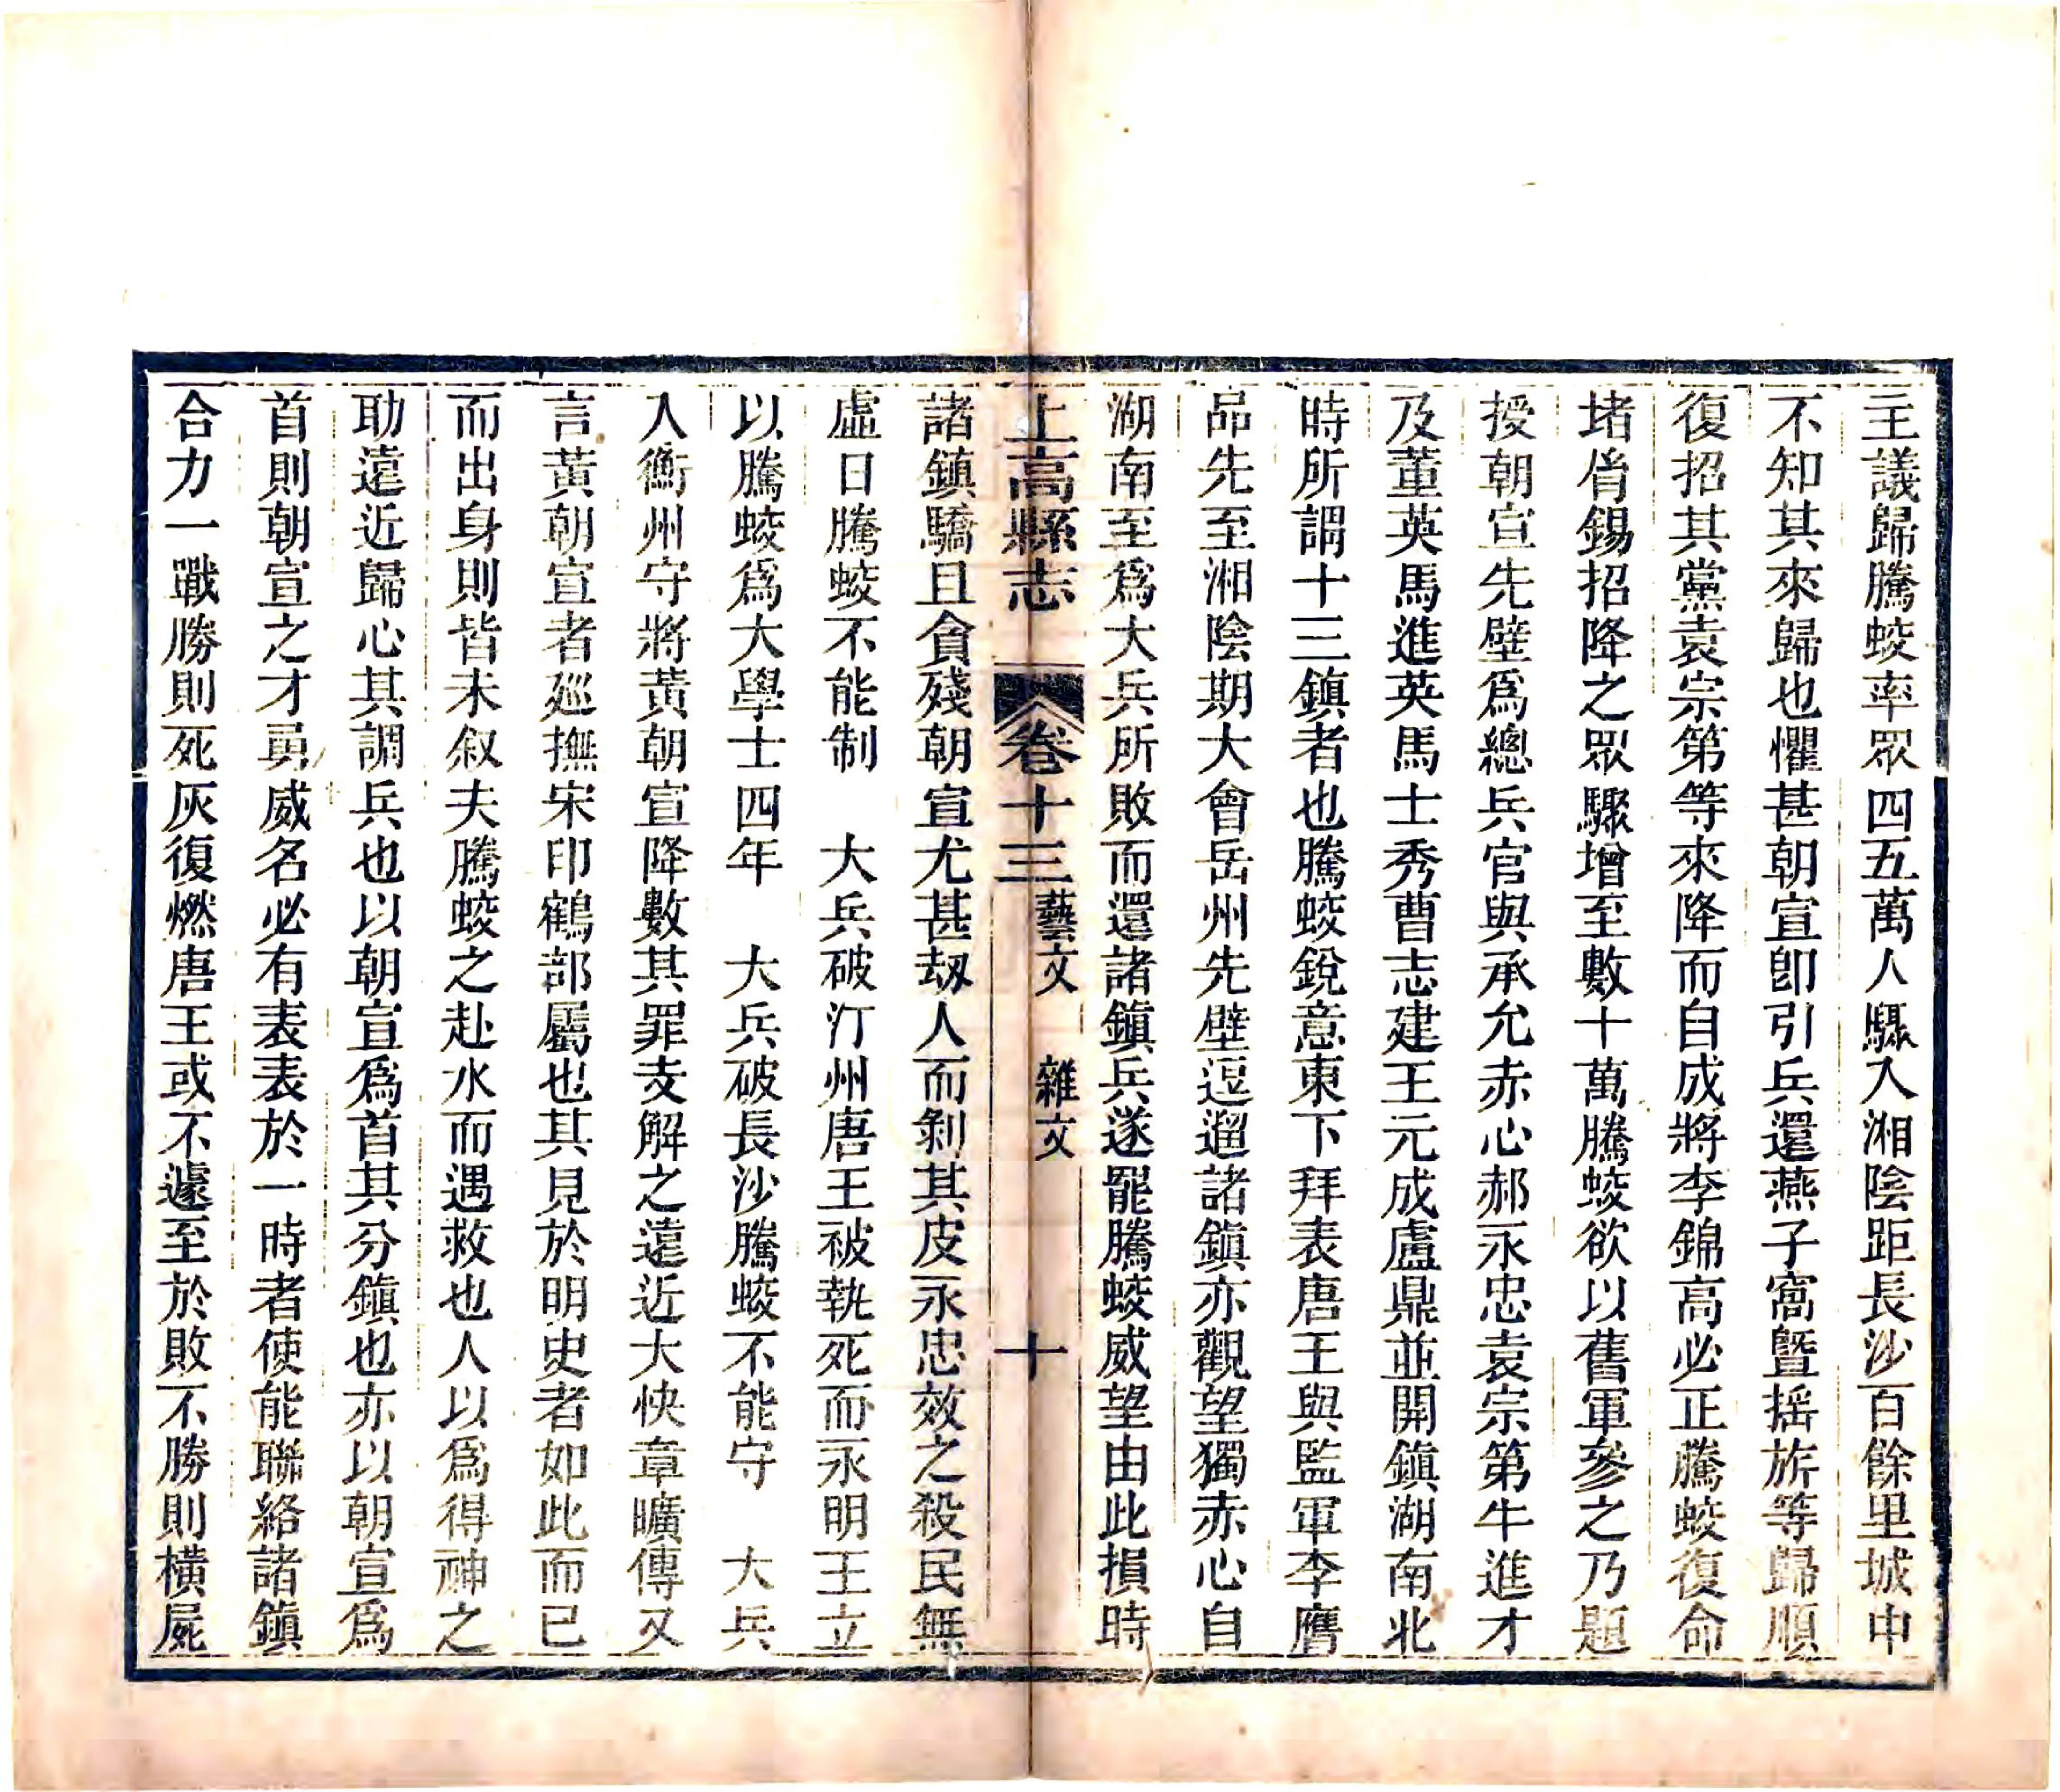 主議歸騰蛟率眾四五萬人驟入湘陰距長沙百餘里城中
不知其來歸也懼甚朝宣卽引兵還燕子窩暨搖旂等歸順
復招其黨袁宗第等來降而自成將李錦高必正騰蛟復命
堵胤錫招降之眾驟增至數十萬騰蛟欲以舊軍參之乃題
授朝宣先壁爲總兵官與承允赤心郝永忠袁宗第牛進才
及董英馬進英馬士秀曹志建王元成盧鼎並開鎭湖南北
時所謂十三鎭者也騰蛟銳意東下拜表唐王與監軍李膺
品先至湘陰期大會岳州先壁逗遛諸鎭亦觀望獨赤心自
湖南至爲大兵所敗而還諸鎭兵遂罷騰蛟威望由此損時
上高縣志 卷十三 藝文 雜文 十
諸鎭驕且貪殘朝宣尤甚刼人而剝其皮永忠效之殺民無
虛日騰蛟不能制 大兵破汀州唐王被執死而永明王立
以騰蛟爲大學士四年 大兵破長沙騰蛟不能守 大兵
入衡州守將黃朝宣降數其罪支解之遠近大快章曠傳又
言黃朝宣者廵撫宋印鶴部屬也其見於明史者如此而已
而出身則皆未叙夫騰蛟之赴水而遇救也人以爲得神之
助遠近歸心其調兵也以朝宣爲首其分鎭也亦以朝宣爲
首則朝宣之才勇威名必有表表於一時者使能聯絡諸鎭
合力一戰勝則死灰復燃唐王或不遽至於敗不勝則橫屍